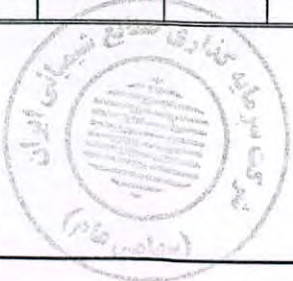 شرکت سرمایه گذاری صنایع شیمیائی ایران
(سهامی عام)